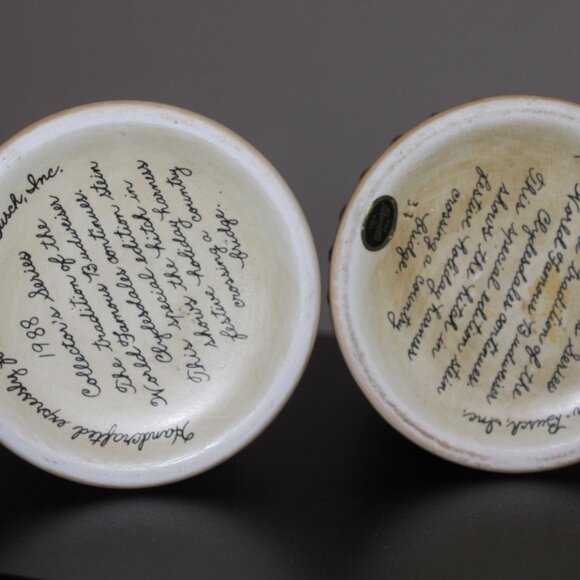 Handcrafted expressly f
Busch, Inc.
1988
Collector's Series
The tradition of the
World Famous Budweiser
Clydesdales continues.
This special edition stein
shows the hitch in
festive holiday harness
crossing a country
bridge.
Busch, Inc.
Series
tradition of the
World Famous Budweiser
Clydesdales continues.
This special edition stein
shows the hitch in
festive holiday harness
crossing a country
bridge.